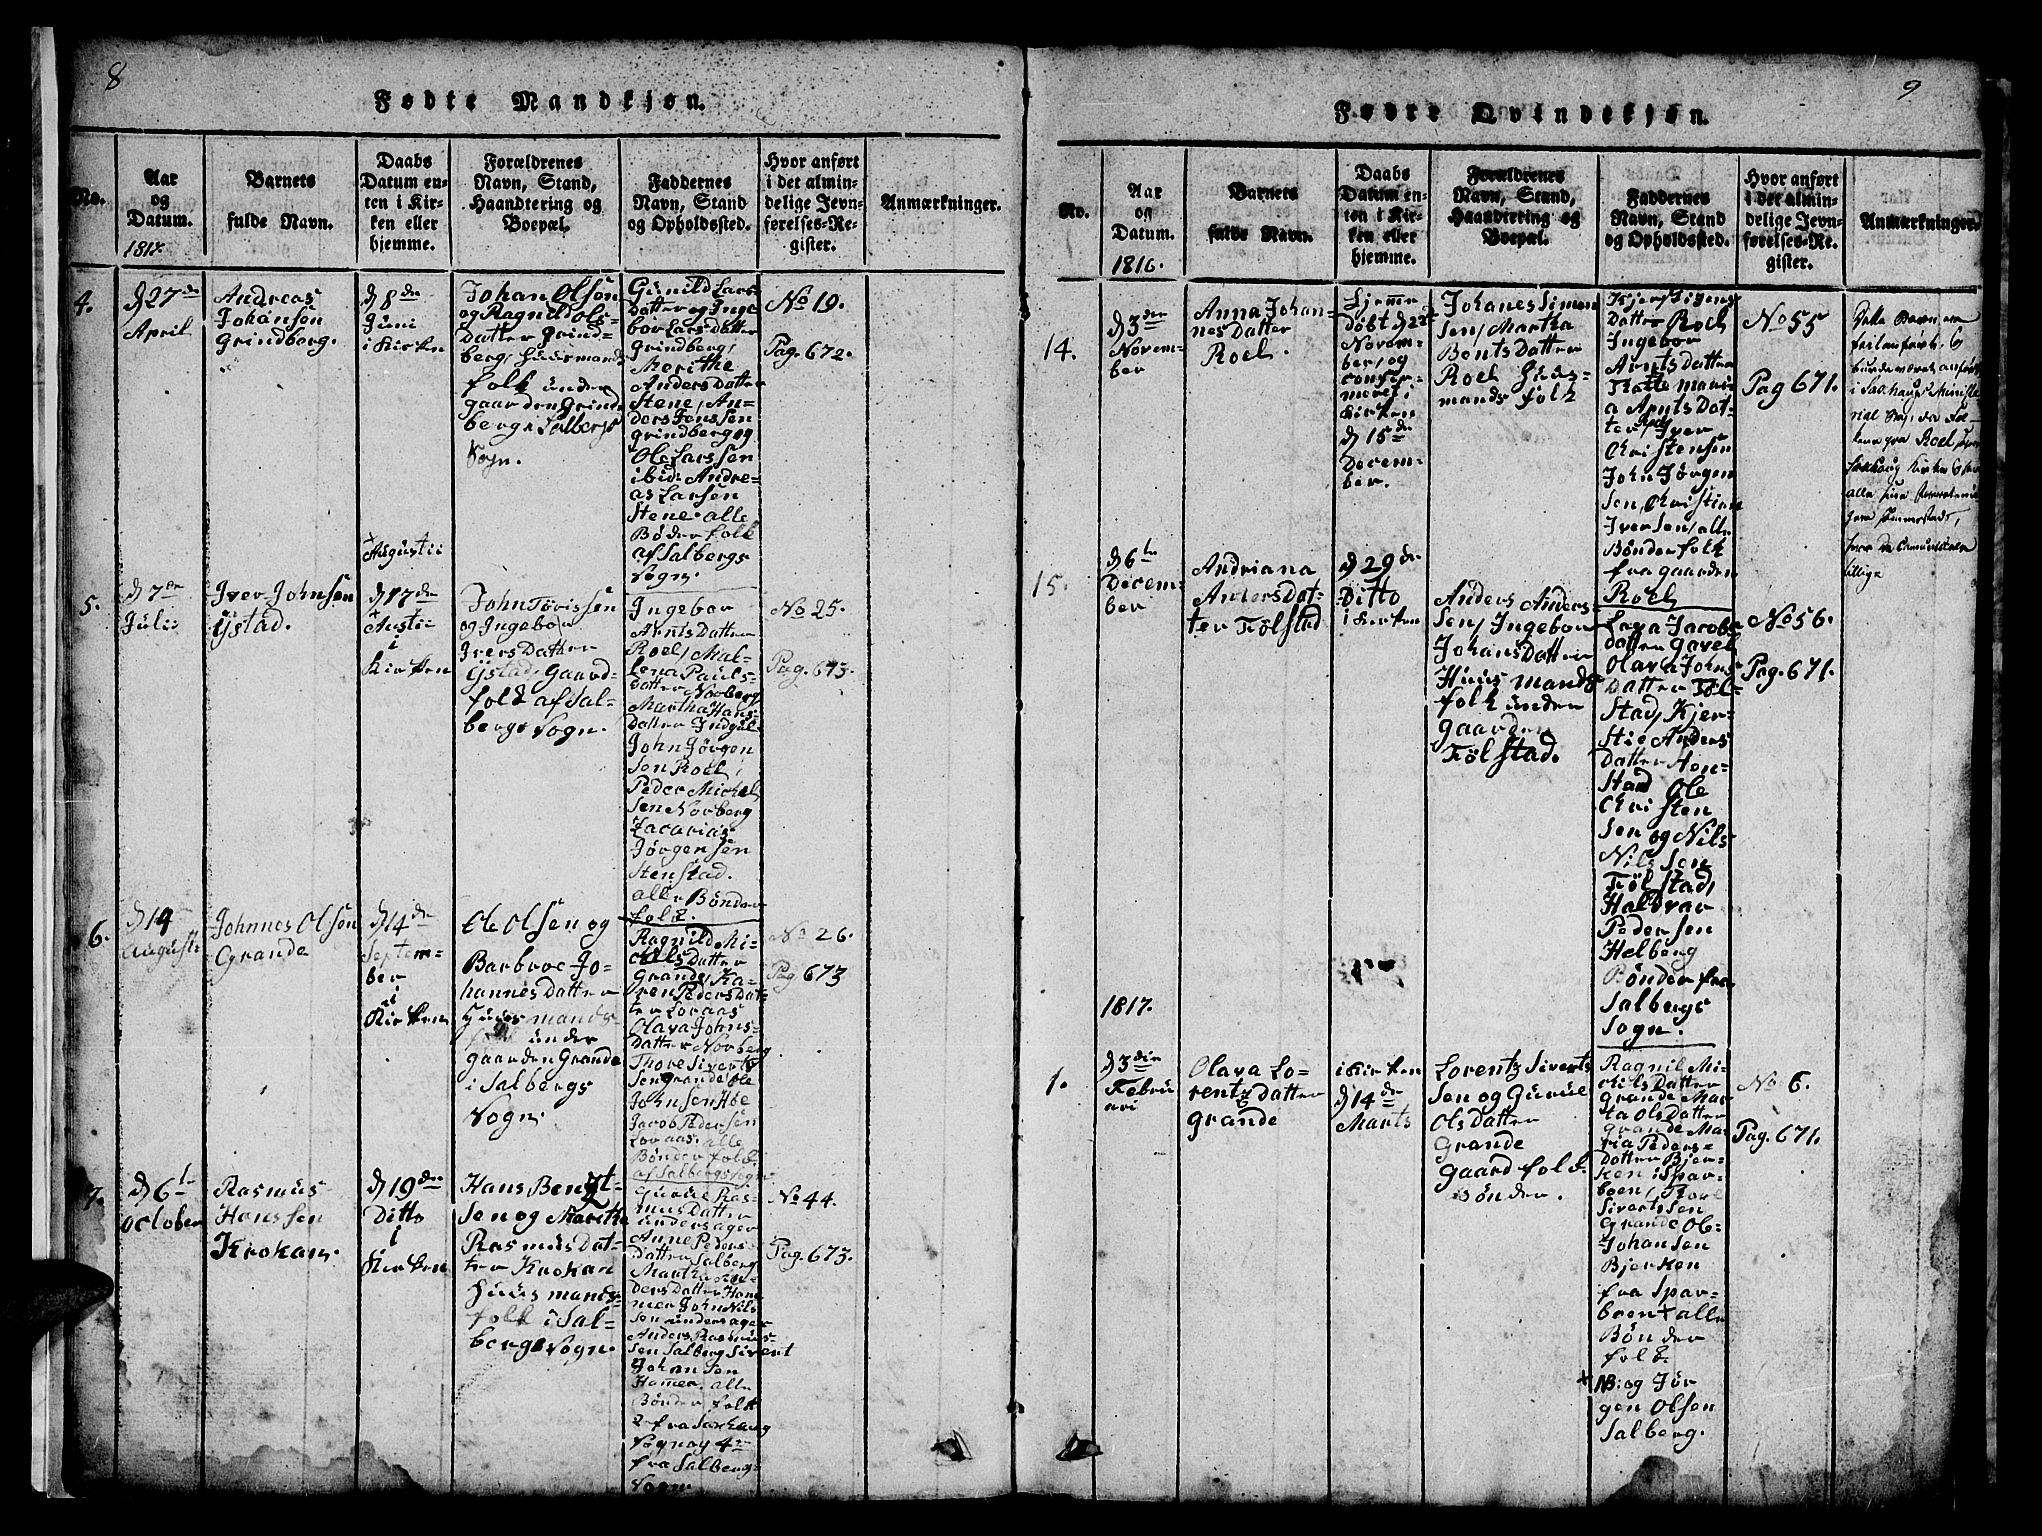 8
Fødte Mandkjøn.
No.
Aar
og
Datum.
1817.
Barnets
fulde Navn.
Daabs
Datum en-
ten i Kir-
ken eller
hjemme.
Forældrenes
Navn, Stand,
Haandtering og
Boepæl.
Faddernes
Navn, Stand
og Opholdssted.
Hvor anført
i det almin-
delige Jevn-
førelses-Re-
gister.
Anmærkninger.
4.
d 27de
April
Andreas
Johansön
Grindberg.
d 8de
Juni
i Kirken
Johan Olsön
og Ragnild Ols
Datter Grind
berg, Huusmands
folk under
gaarden Grind
berg i Salbergs
Sogn.
Gunild Lars
Datter og Inge
bor Lars Datter
Grindberg,
Merithe
Anders Datter
Stene, An-
ders Jonssen
grindberg og
Ole Larssen
ibid: Andre-
as Larsen
Stene. alle
Bønder folk
af Salbergs
Sogn.
No 19.
Pag. 672.
5.
d 7de
Julii
Iver Johnsen
ÿstad.
+
Augustii
d 17de
+
Austii
i
Kirken
John Tørissen
og Ingebor
Ivers Datter
ÿstad. Gaard-
folk af Sal-
bergs Sogn.
Ingebor
Arnts Datter
Roel, Mal-
lena Pauls-
datter Norberg
Martha Hans-
Datter
John Jörgen
sen Roel,
Peder Michel
sen Norberg
Zacarias
Jörgensen
Stenstad.
alle Bönder
folk.
No 25.
Pag. 673.
6.
d 14
Augusti
Johnnes Olsön
Grande
d 14de
Septem-
ber
i
Kirken
Ole Olsen og
Barbroe Jo-
hannes Datter
Huusmands-
folk under
gaarden Grande
i Salbergs
Sogn.
Ragnild Mi-
chils Datter
Grande, Ka-
ren Peders Dat-
ter Loraas
Olava Johns-
Datter Norberg
Thore Siverts
Sen grande Ole
Johnsen Høe
Jacob Pedersen
Loraas. alle
Bönder folk.
af Salbergs Sogn
No 26.
Pag. 673
7.
d 6te
October
Rasmus
Hanssen
Krokan.
d 19de
Ditto
i
Kirken
Hans Bengt-
sen og Marithe
Rasmus Dat-
ter Krokan
Huusmands-
folk i Sal-
bergs Sogn.
Gurue Ras-
mus Datter
undersager
Anne Peders
Datter Salberg
Martha An-
ders Datter Ham
mer John Nils
sen undersager
Anders Rasmus-
sen Salberg Sivert
Johansen
Hammer. alle
Bönder folk
2 fra Saxhaug
Sogn og 4re
fra Salbergs-
Sogn.
No 44.
Pag. 673.
9
Fødte Qvindekjøn.
No.
Aar
og
Datum.
1816.
Barnets
fulde Navn.
Daabs
Datum en-
ten i Kir-
ken eller
hjemme.
Forældrenes
Navn, Stand,
Haandtering og
Boepæl.
Faddernes
Navn, Stand
og Opholdssted.
Hvor anført
i det almin-
delige Jevn-
førelses-Re-
gister.
Anmærkninger.
14.
d 3die
Novem-
ber
Anna Johan-
nes Datter
Roel.
Hjemme
döbt d 22
Novem-
ber, og
confir-
meret i
Kirken
d 15de
Decem-
ber.
Johanes Simon
sen, Martha
Bents Datter
Roel Huus-
mands folk
Kjersti Jens
Datter Roel
Ingebor
Arnts Datter
Roel
a Arnts Dat-
ter Roel, Iver
Christensen
John Jørgen
sen, Christian
Iversen, alle
Bönder folk
fra gaarden
Roel
No 55
Pag 671.
Dette Barn er
feilanført, &
burde været anført
i Saxhaug Minište-
rial Bog, da Fol-
kene fra Roel søger
Saxhaug Kirke & har
alle sine
15.
d 6te
Decem-
ber
Andriana
Anders Dat-
ter Tölstad
d 29de
Ditto
i Kirken
Anders Anders-
sen, Ingebor
Johans Datter
Huusmands
folk under
gaarden
Tölstad.
Jacobs
datter Gavel
Olava Johns
Datter Töl-
stad, Kjer-
stie Anders
Datter Hen-
stad Ole
Christen
sen og Nils
Nilssen
Tölstad,
Haldvar
Pedersen
Helberg
Bönder fra
Salbergs
Sogn.
No 56.
Pag. 671.
1817.
1.
d 3die
Februari
Olava Lo-
rentz Datter
Grande
i Kirken
d 14de
Marts
Lorentz Siverts
sen og Gurue
Ols Datter
Grande
Gaard folk.
Bönder.
Ragnil Mi-
chils Datter
Grande Mar-
ta Ols Datter
Grande Ma-
ria Peders-
datter Bjer-
ken i Spar-
boen, Tore
Sivertssen
Grande Ole
Johansen
Bjerken
fra Spar-
boen + alle
Bönder
folk.
+ NB: og Jör
gen Olsen
Salberg.
No 6.
Pag. 671.